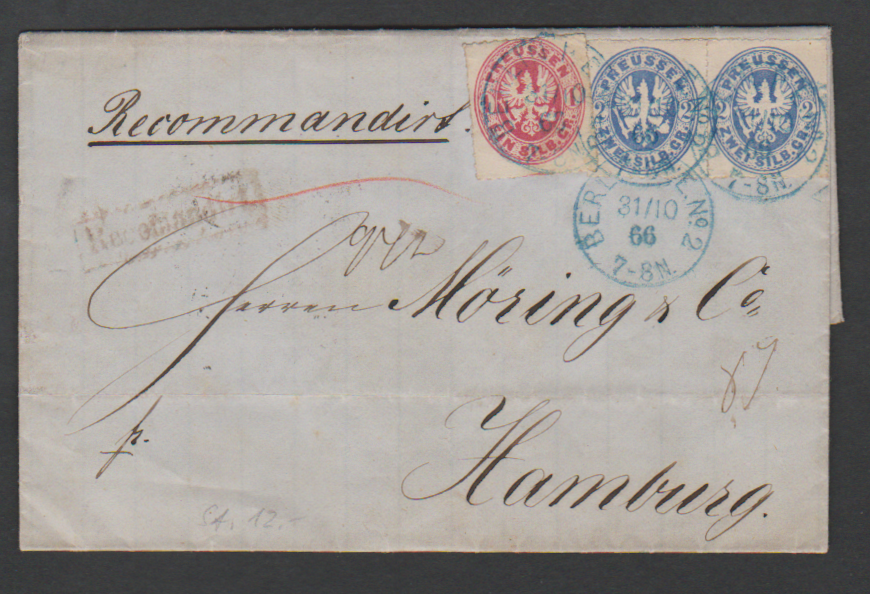 Recommandirt.
PREUSSEN
1 1
EIN SILB. GR.
PREUSSEN
2 2
ZWEI SILB. GR.
PREUSSEN
2 2
ZWEI SILB. GR.
66
7-8N.
BERLIN No 2
31/10
66
7-8N.
Recomandirt
Herren Möring & Co
p.
Hamburg.
St. 12.-